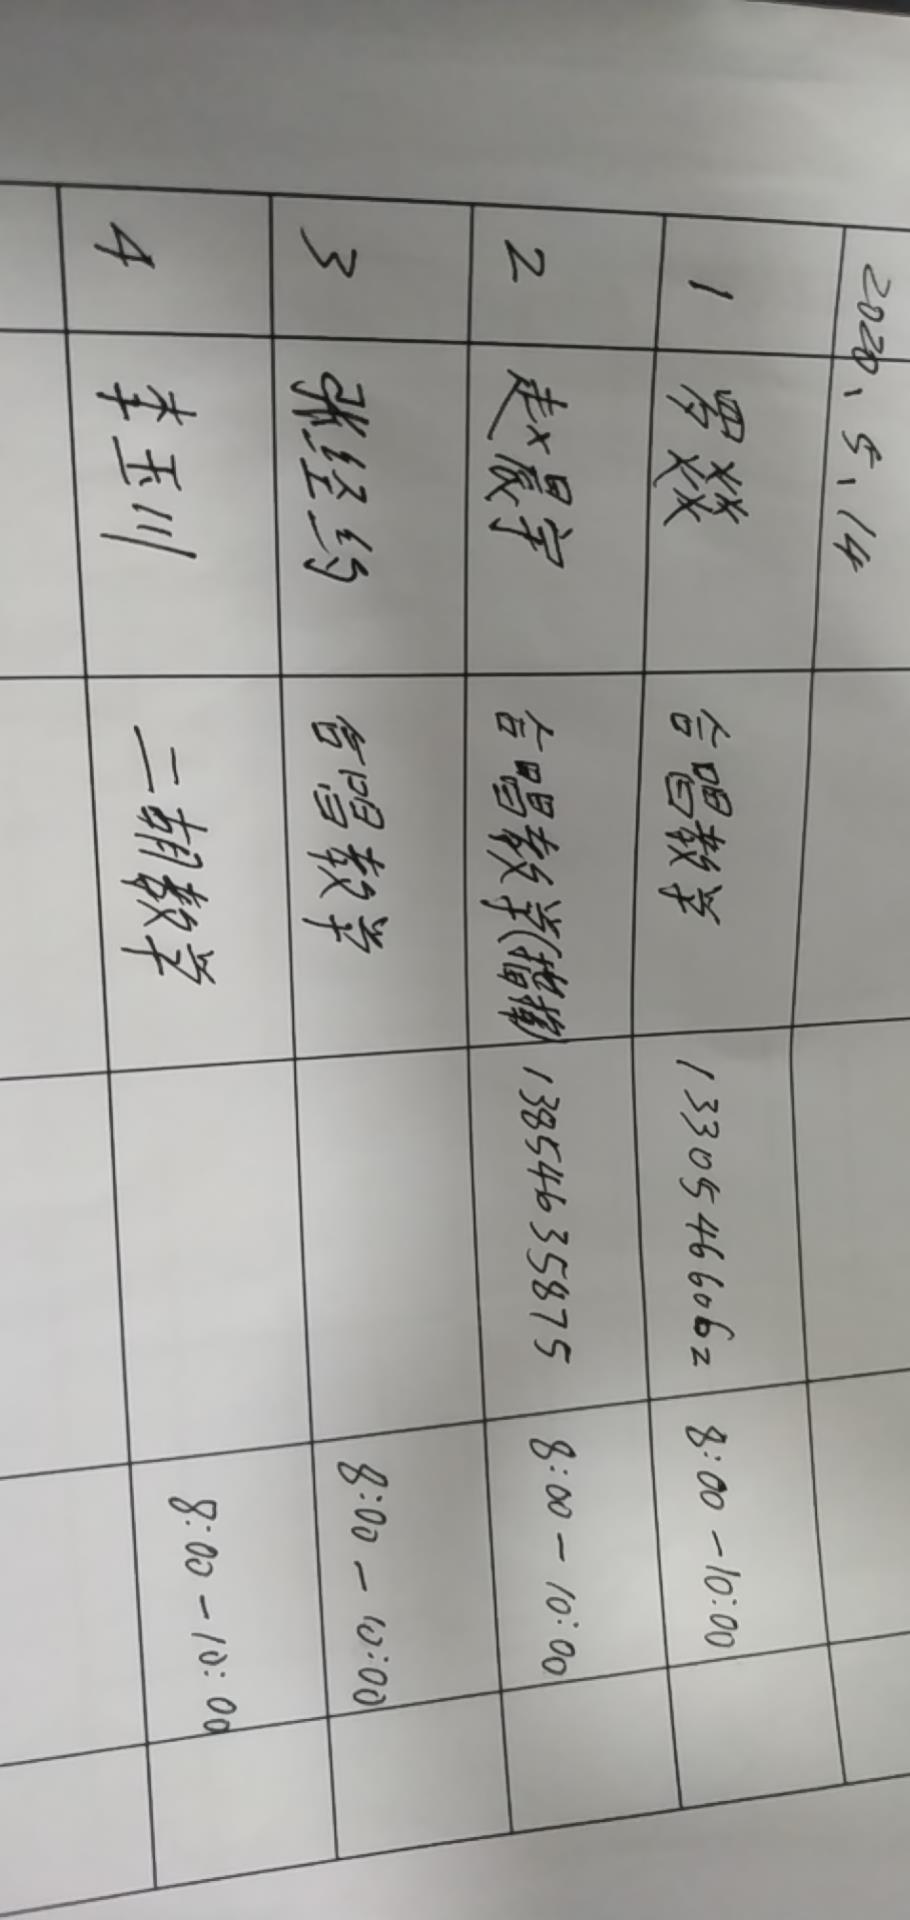 2020.5.14
1 罗燚 合唱教学 13305466062 8:00-10:00
2 赵晨宇 合唱教学(指挥) 13854635875 8:00-10:00
3 张经纬 合唱教学 8:00-10:00
4 李玉川 二胡教学 8:00-10:00